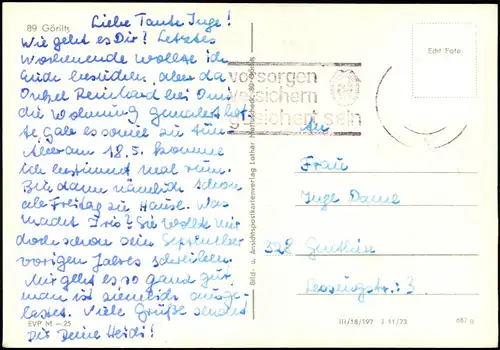 89 Görlitz
Liebe Tante Inge!
Wie geht es Dir? Letztes
Wochenende wollte ich
Euch besuchen, aber da
Onkel Reinhard bei Omi
die Wohnung gemalert hat-
te, gab es soviel zu tun.
Aber am 18.5. komme
ich bestimmt mal rum.
Bin dann nämlich schon
ab Freitag zu Hause. Was
macht Iris? Sie wollte mir
doch schon seit September
vorigen Jahres schreiben.
Mir geht es so ganz gut,
man ist ziemlich ausge-
lastet. Viele Grüße sendet
Dir Deine Heidi!
EVP M –.25
Bild- u. Ansichtspostkartenverlag Lothar
vorsorgen
versichern
gesichert sein
Echt Foto
An
Frau
Inge Dame
328 Genthin
Lessingstr.: 3
III/18/197 J 11/73
687 g